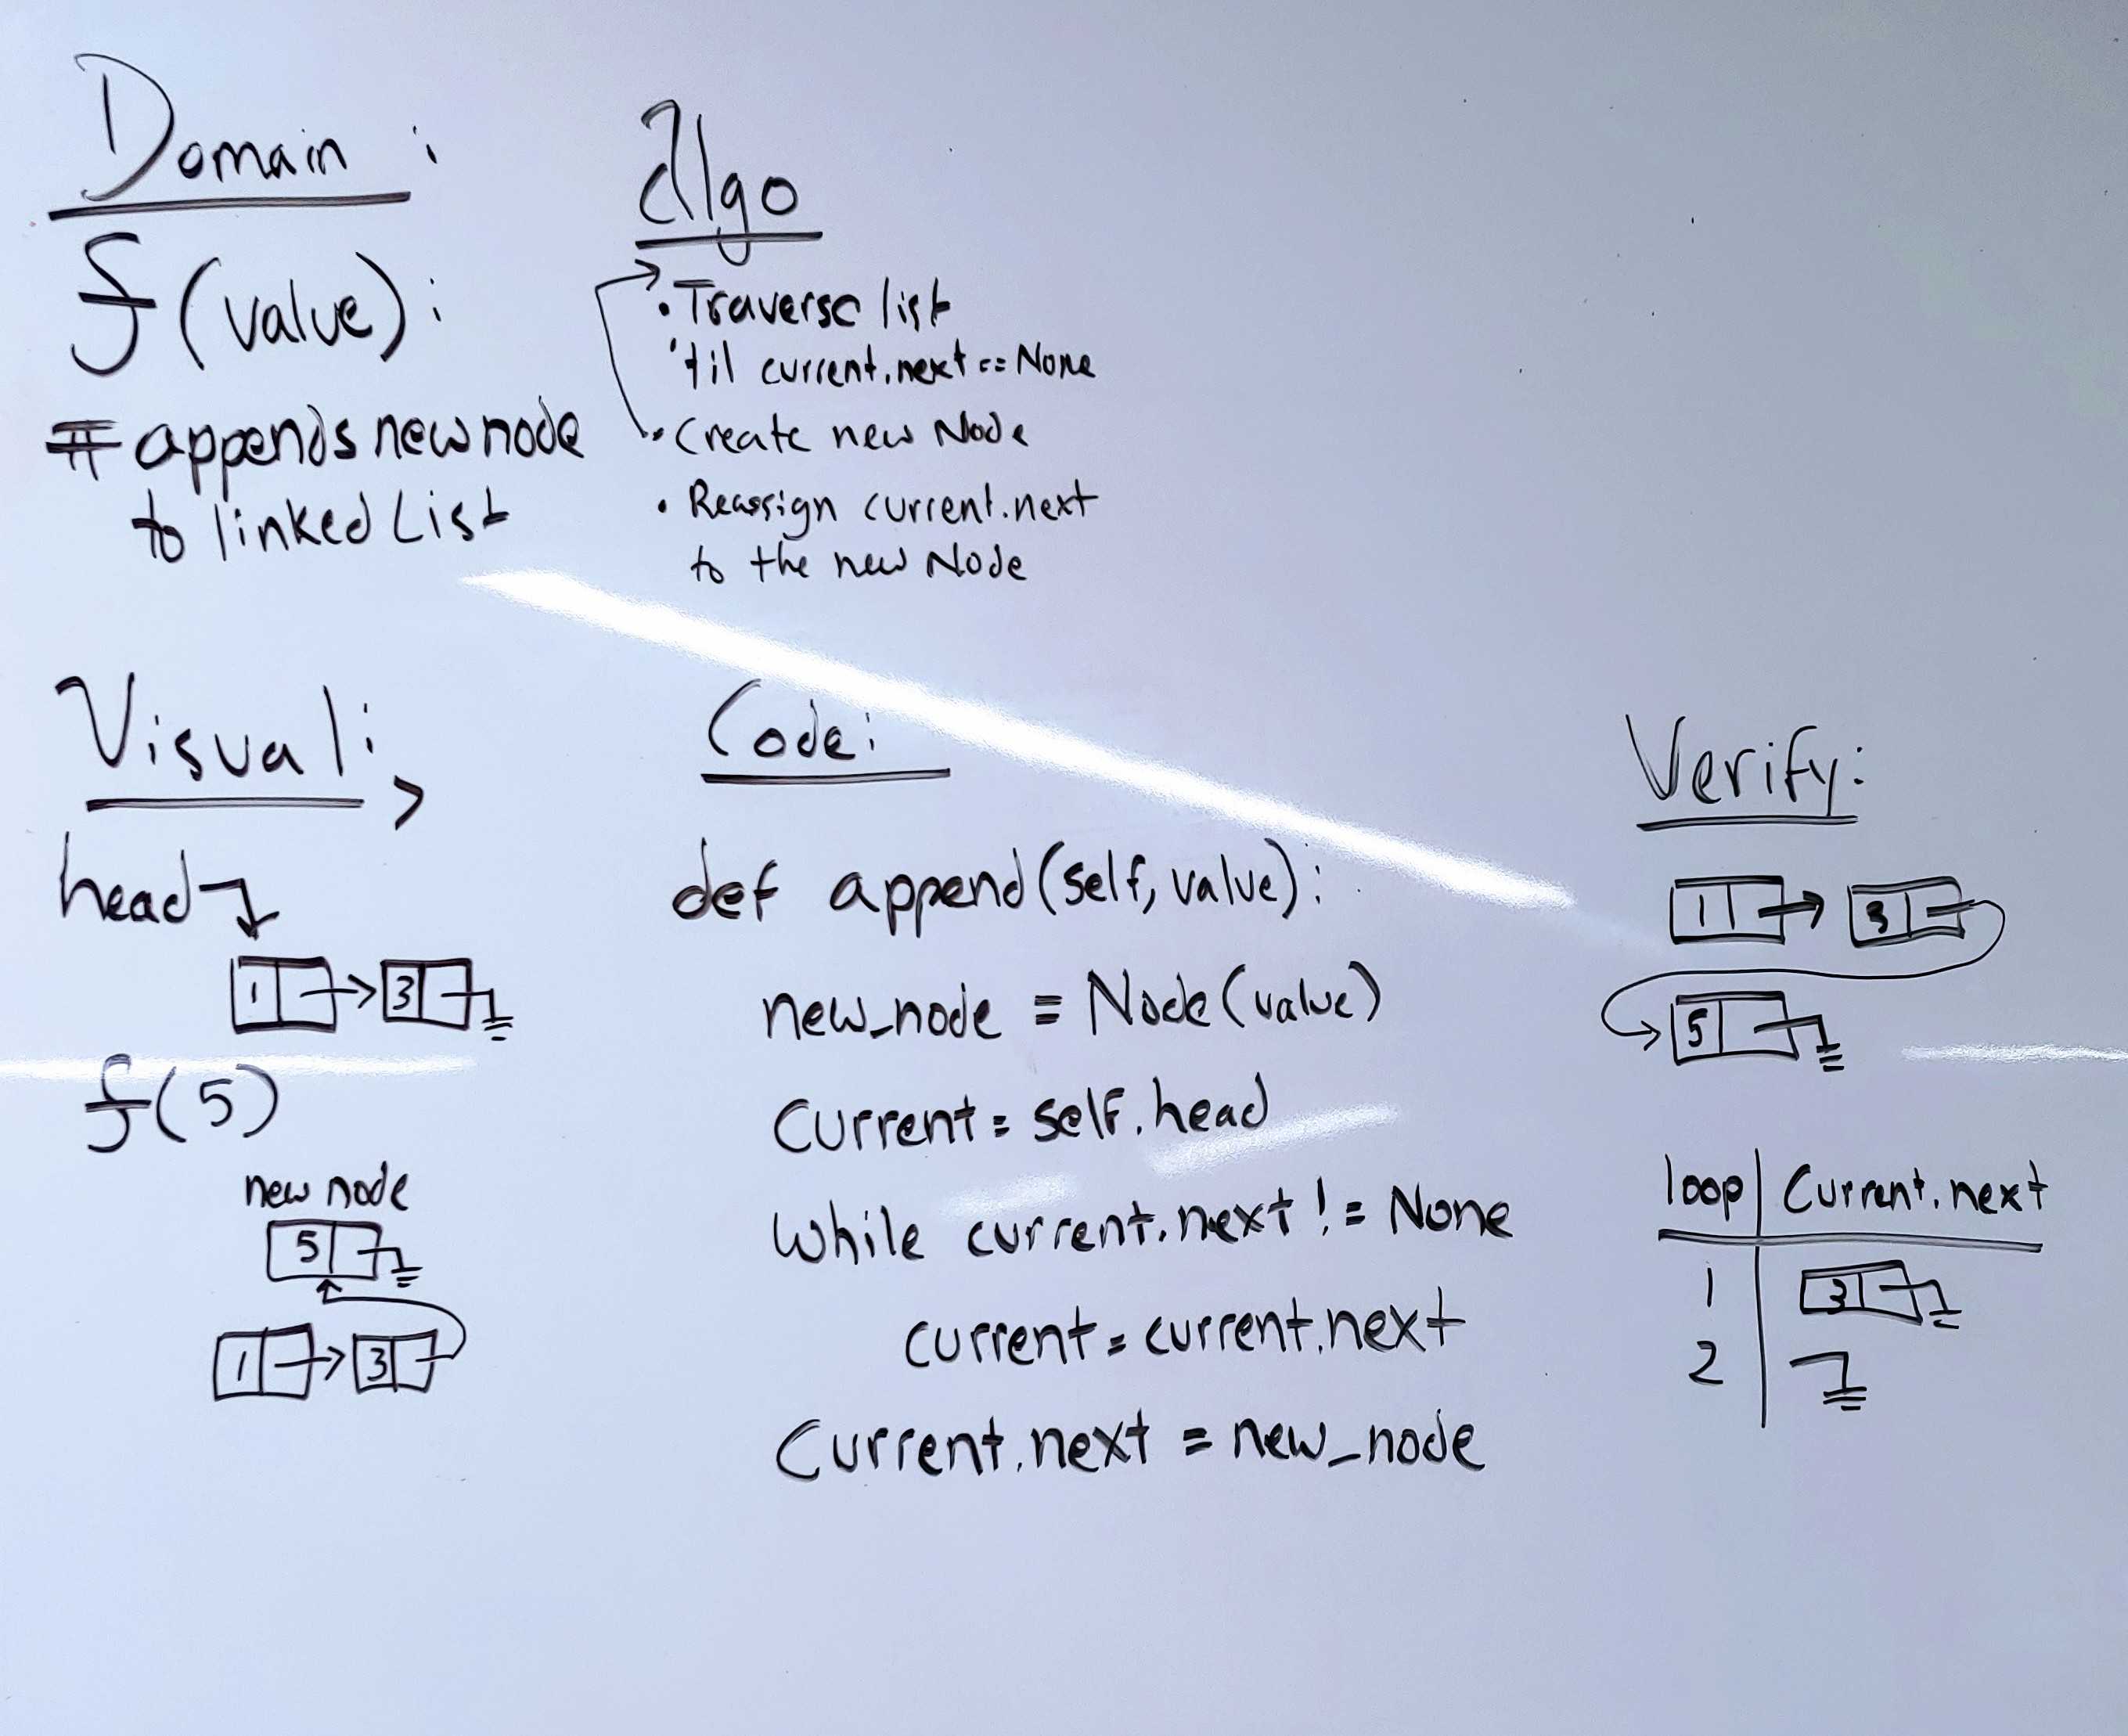 Domain :
f(value) :
# appends new node
to linked List
Algo
• Traverse list
'til current.next == None
• Create new Node
• Reassign current.next
to the new Node
Visual:
head
1 3
f(5)
new node
5
1 3
Code:
def append(self, value):
new_node = Node(value)
Current = self.head
While current.next != None
current = current.next
Current.next = new_node
Verify:
1 3
5
loop Current.next
1 3
2